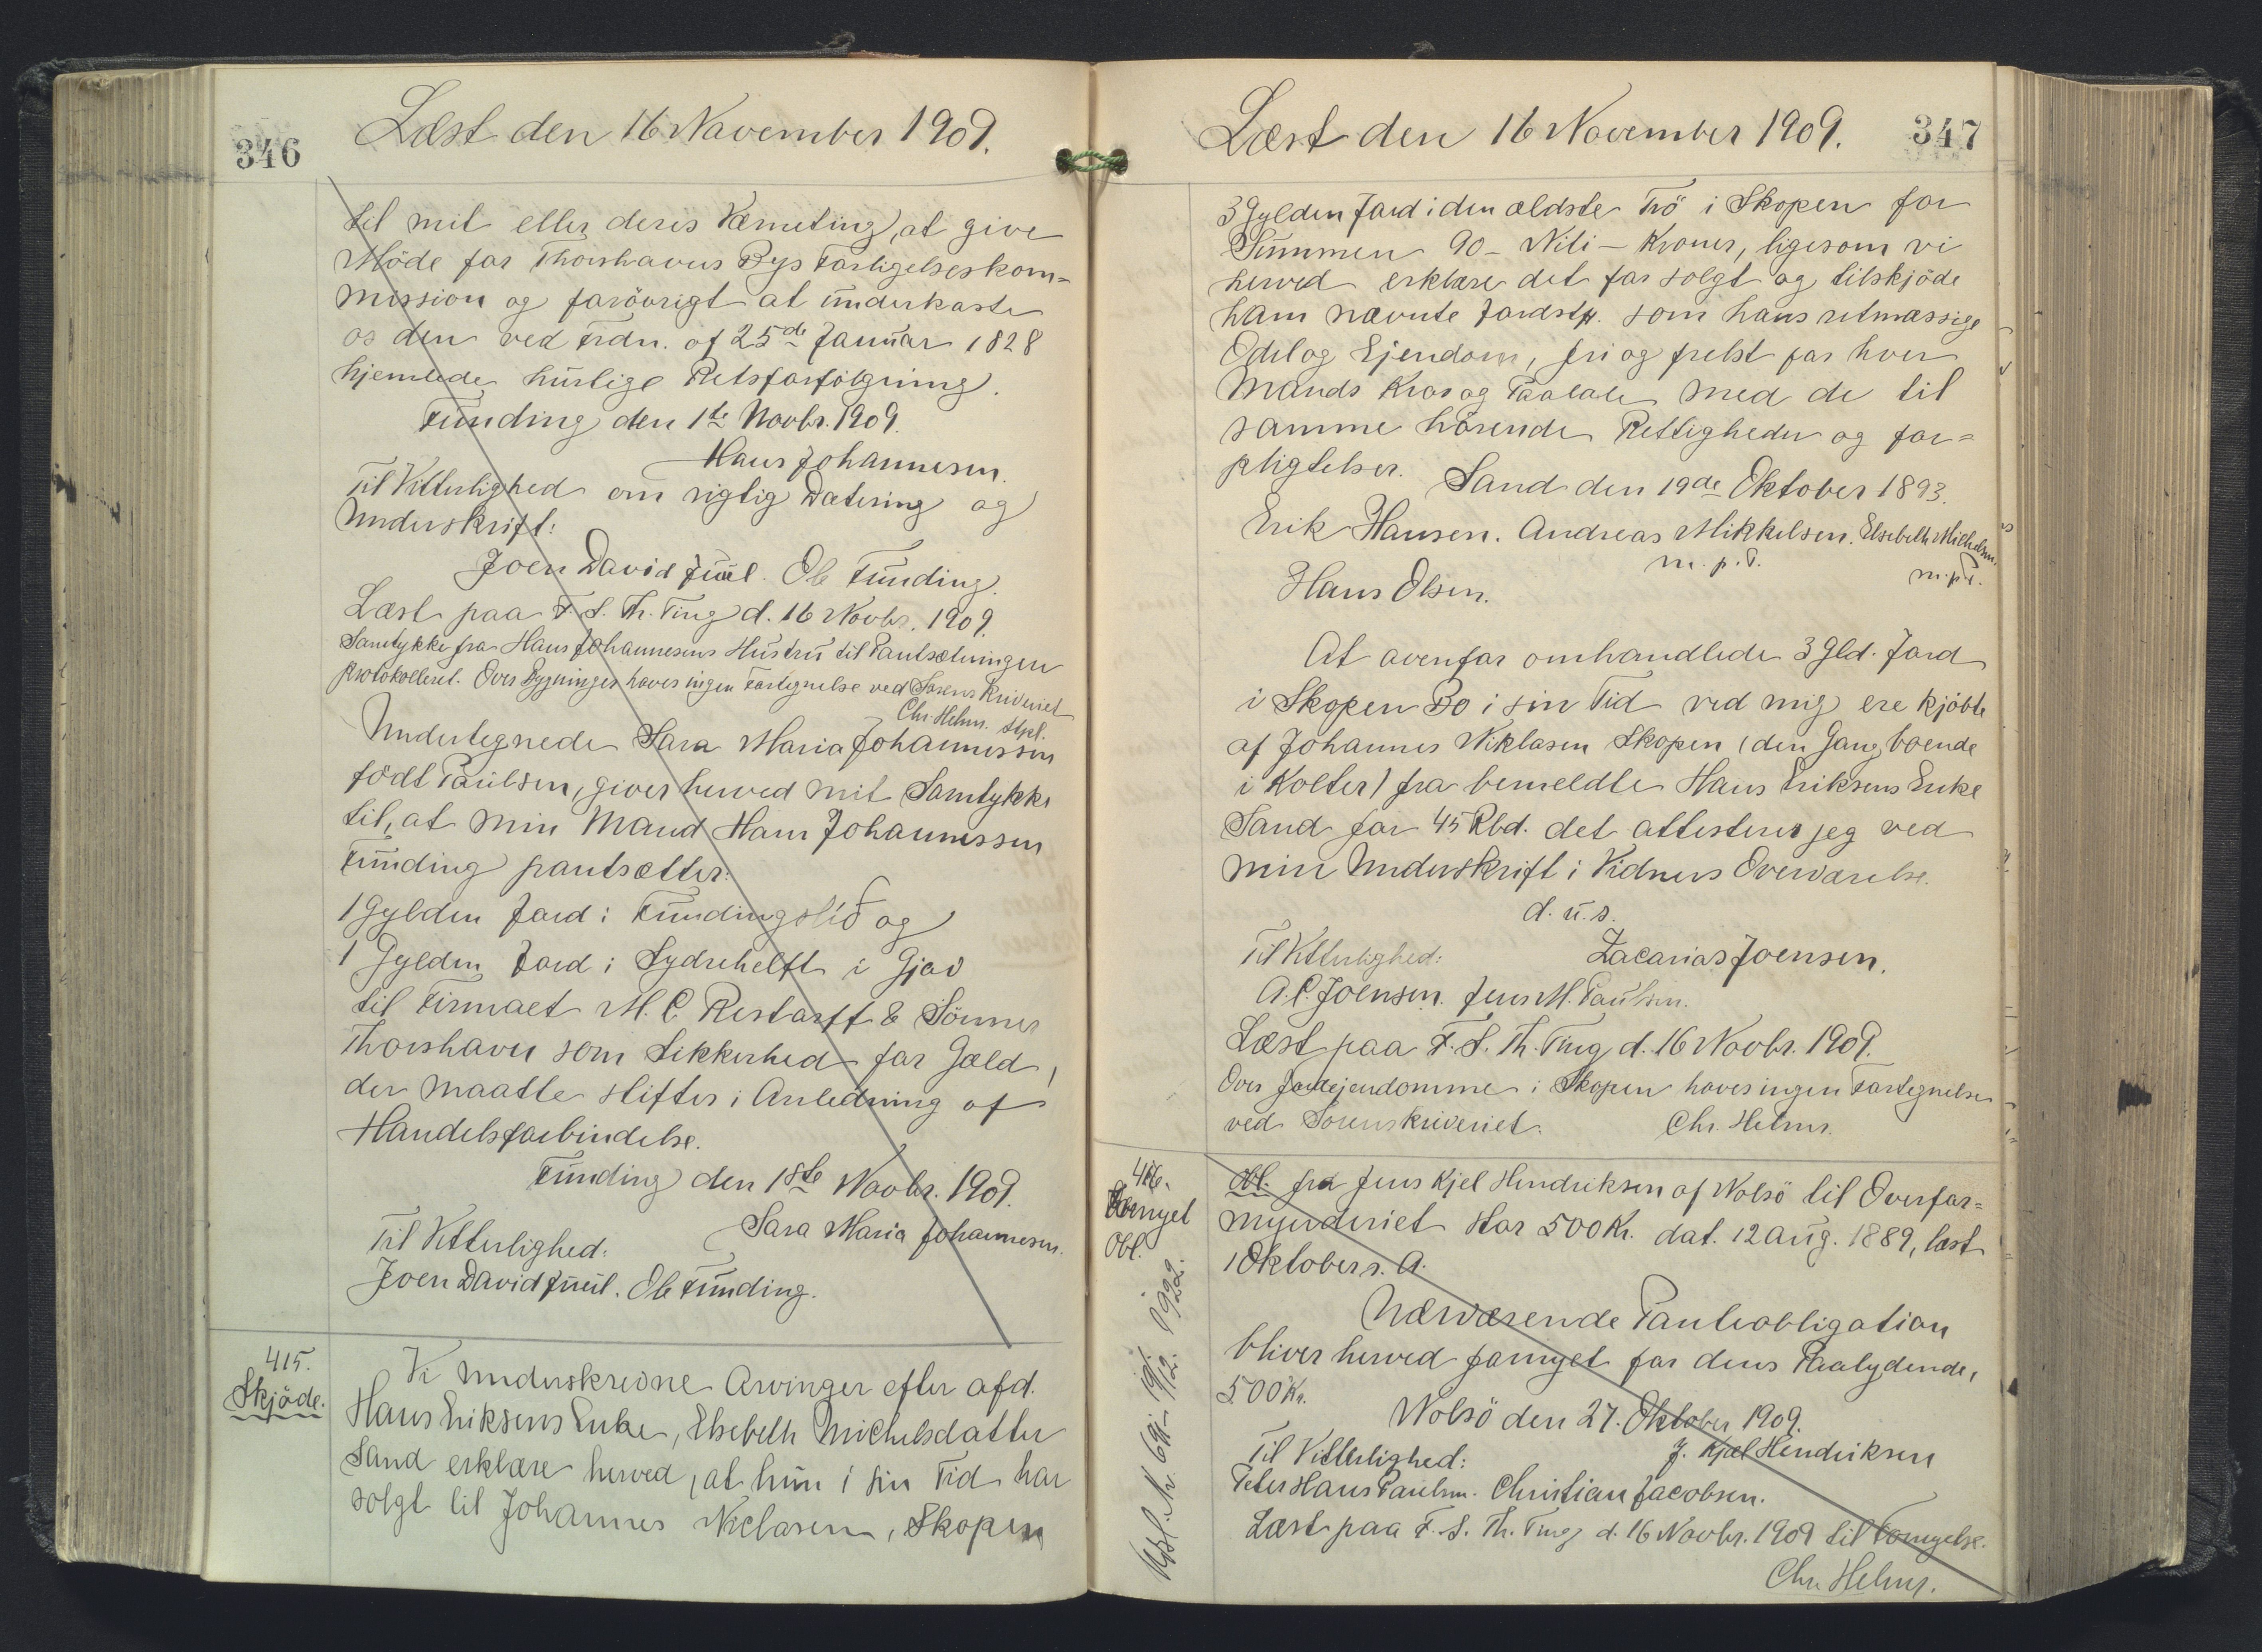 346
Læst den 16 November 1909.
til mit eller deres Værneting, at give
Möde for Thorshavns Bys Forligelseskom=
mission og forövrigt at underkaste
os den ved Frdn. af 25de Januar 1828
hjemlede hurtige Retsforfölgning.
Funding den 1te Novbr. 1909.
Hans Johannesen.
Til Vitterlighed om rigtig Datering og
Underskrift:
Joen David Juul. Ole Funding.
Læst paa F. S. Th. Ting d. 16 Novbr. 1909.
Samtykke fra Hans Johannesens Hustru til Pantsætningen
protokolleret. Over Bygninger haves ingen Fortegnelse ved Sorenskriveriet
Chr. Helms. Stpl.
Undertegnede Sara Maria Johannessen
födt Paulsen, giver herved mit Samtykke
til, at min Mand Hans Johannessen
Funding pantsætter:
1 Gylden Jord i Fundingslið og
1 Gylden Jord i Sydrehelft i Gjov
til Firmaet M. C. Restorff & Sönner
Thorshavn som Sikkerhed for Gæld,
der maatte stiftes i Anledning af
Handelsforbindelse.
Funding den 1ste Novbr. 1909.
Sara Maria Johannesen.
Til Vitterlighed:
Joen David Juul. Ole Funding.
415.
Skjöde.
Vi underskrevne Arvinger efter afd.
Hans Eriksens Enke, Elsebeth Michelsdatter
Sand erklære herved, at hun i sin Tid har
solgt til Johannes Niclasen, Skopen
Læst den 16 November 1909.
347
3 Gylden Jord i den ældste Trö i Skopen for
Summen 90 - Niti - Kroner, ligesom vi
herved erklære det for solgt og tilskjöde
ham nævnte Jordstk. som hans retmæssige
Odel og Ejendom, fri og frelst for hver
Mands Krav og Paatale med de til
samme hörende Rettigheder og for=
pligtelser.
Sand den 19de Oktober 1893.
Erik Hansen. Andreas Mikkelsen. Elsebeth Michelsen.
m. p. P. m. p. P.
Hans Olsen.
At ovenfor omhandlede 3 Gld. Jord
i Skopen Bö i sin Tid ved mig ere kjöbte
af Johannes Niklasen Skopen (den Gang boende
i Kolter) fra bemeldte Hans Eriksens Enke
Sand for 45 Rbd. det attesterer jeg ved
min Underskrift i Vidners Overværelse.
d. u. s.
Til Vitterlighed:
Zacarias Joensen.
A. C. Joensen. Jens M. Paulsen.
Læst paa F. S. Th. Ting d. 16 Novbr. 1909.
Over Jordejendomme i Skopen haves ingen Fortegnelse
ved Sorenskriveriet.
Chr. Helms.
416.
Fornyet
Obl.
Udsl. Nr. 691 - 19/12. 1922.
Obl. fra Jens Kjel Hendriksen af Nolsö til Overfor=
mynderiet stor 500 Kr. dat. 12 Aug. 1889, læst
1 Oktober s. A.
Nærværende Panteobligation
bliver herved fornyet for dens Paalydende,
500 Kr.
Nolsö den 27. Oktober 1909.
J. Kjæl Hendriksen
Til Vitterlighed:
Peter Hans Paulsen. Christian Jacobsen.
Læst paa F. S. Th. Ting d. 16 Novbr. 1909 til Fornyelse.
Chr. Helms.